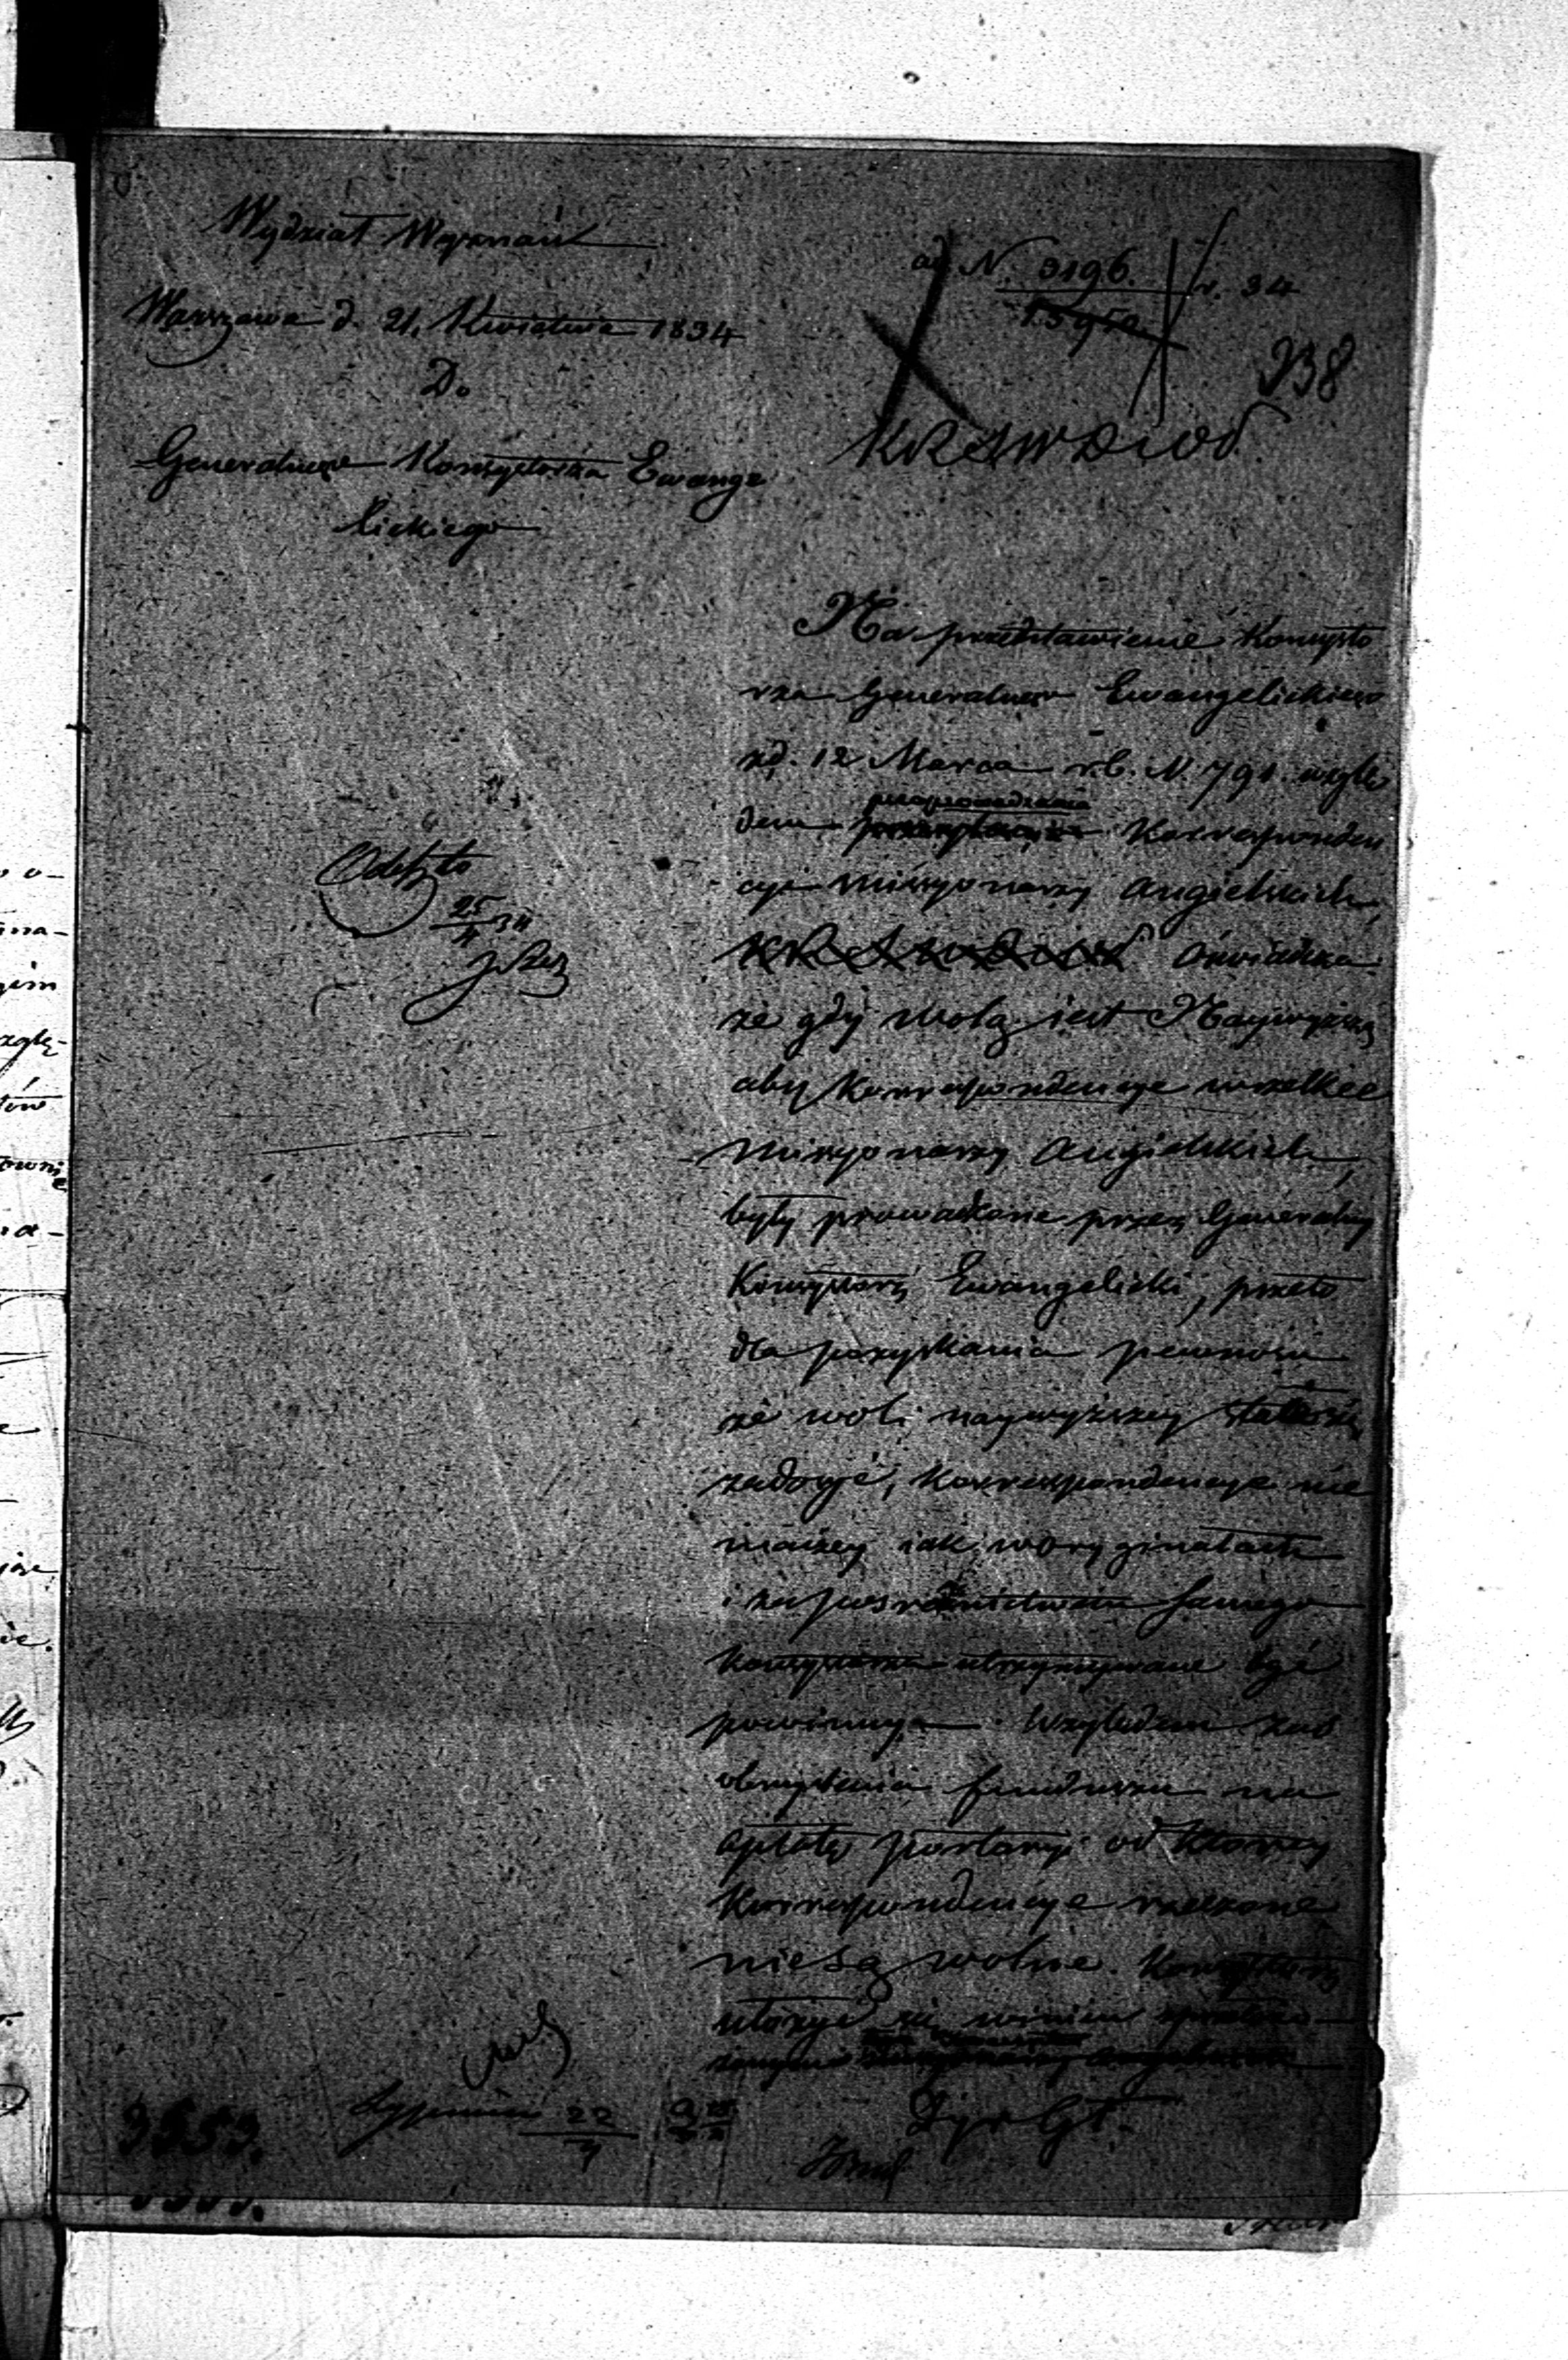 Wydział Wyznań
Warszawa d. 21, Kwietnia 1834
Do
Generalnego Konsystorza Ewange
lickiego
ad N. 3196. r. 34
238
KRSWDiOd
Na przedstawienie Konsysto
rza Generalnego Ewangelickiego
zd. 12 Marca r.b. N. 791. wzglę
dem Korresponden
cyi Missyonarzy Angielskich,
Oświadcza
że gdy wolą jest Naywyższą
aby Korrespondencye wszelkie
Missyonarzy Angielskich,
były prowadzone przez Generalny
Konsystorz Ewangelicki, przeto
dla pozyskania pewności
że woli naywyższey stało się
zadosyć, Korrespondencye nie
inaczey iak w oryginałach
i za pośrednictwem samego
Konsystorza utrzymywane być
powinny. Względem zaś
obmyślenia funduszu na
opłatę portoryi od którey
Korrespondencye rzeczone
nie są wolne. Konsystorz
ułożyć się winien
Odeszło
25/4 34
22/4
3553.
Dyr Gł.